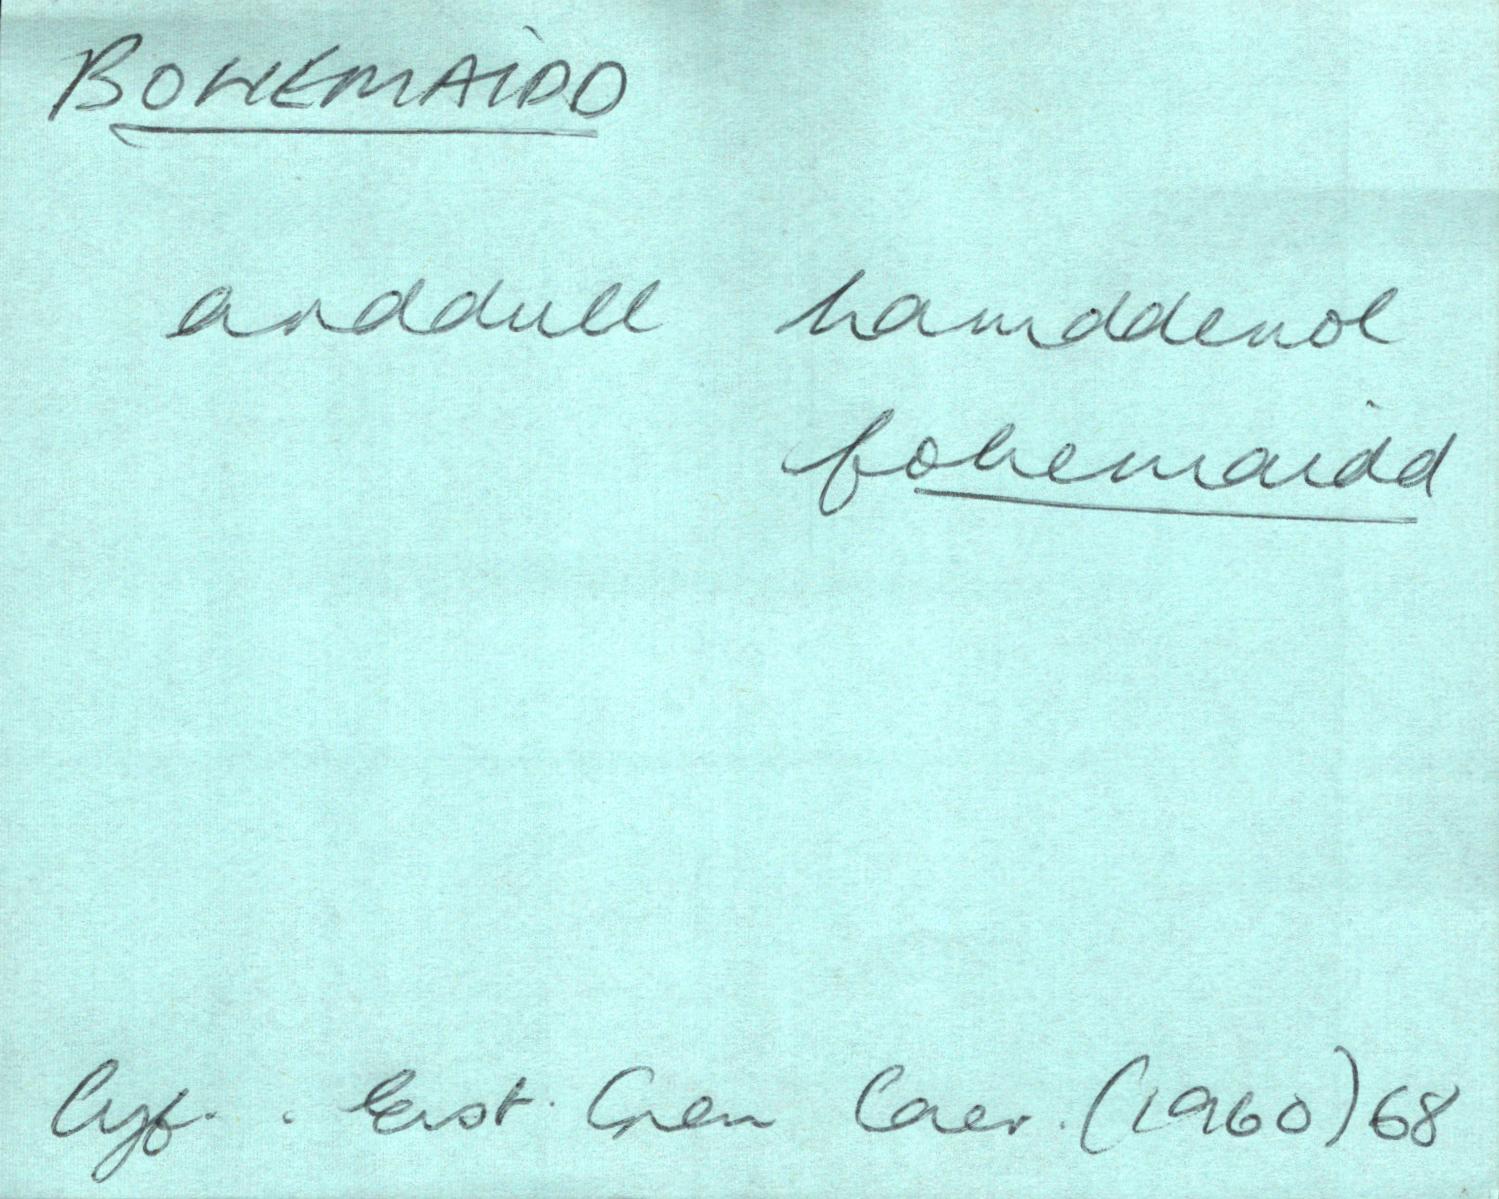 BOHEMAIDD
arddull hamddenol
fohemaidd
Cyf. . Eist. Gen Caer. (1960) 68